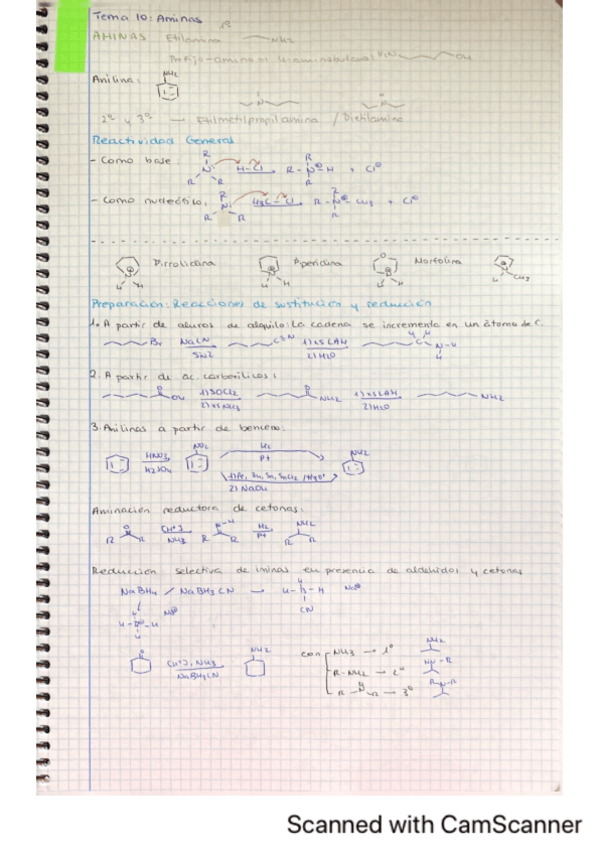 Tema 10: Aminas
AMINAS 1º Etilamina NH2
Prefijo-amino
OH
Anilina: NH2
2º y 3º → Etilmetilpropilamina / Dietilamina
Reactividad General
- Como base: R R R N H-Cl R-N-H + Cl⊖
- Como nucleófilo: R R R N H3C-Cl R-N-CH3 + Cl⊖
Pirrolidina Piperidina Morfolina CH3
Preparación: Reacciones de sustitución y reducción
1. A partir de aluros de alquilo: La cadena se incrementa en un átomo de C.
Br NaCN SN2 C≡N 1) xs LAH 2) H2O
2. A partir de ac. carboxílicos:
O OH 1) SOCl2 2) xs NH3 O NH2 1) xs LAH 2) H2O NH2
3. Anilinas a partir de benceno:
HNO3 H2SO4 NO2 H2 Pt NH2
1) Fe, Zn, Sn, SnCl2 / H3O+
2) NaOH
Aminación reductora de cetonas:
O R R [H+] NH3 N-H R R H2 Pt NH2 R R
Reducción selectiva de iminas en presencia de aldehidos y cetonas
NaBH4 / NaBH3CN → H-B-H Na⊕
CN
O [H+], NH3 NaBH3CN NH2
con NH3 → 1º NH2
R-NH2 → 2º HN-R
R-N-R → 3º R-N-R
Scanned with CamScanner